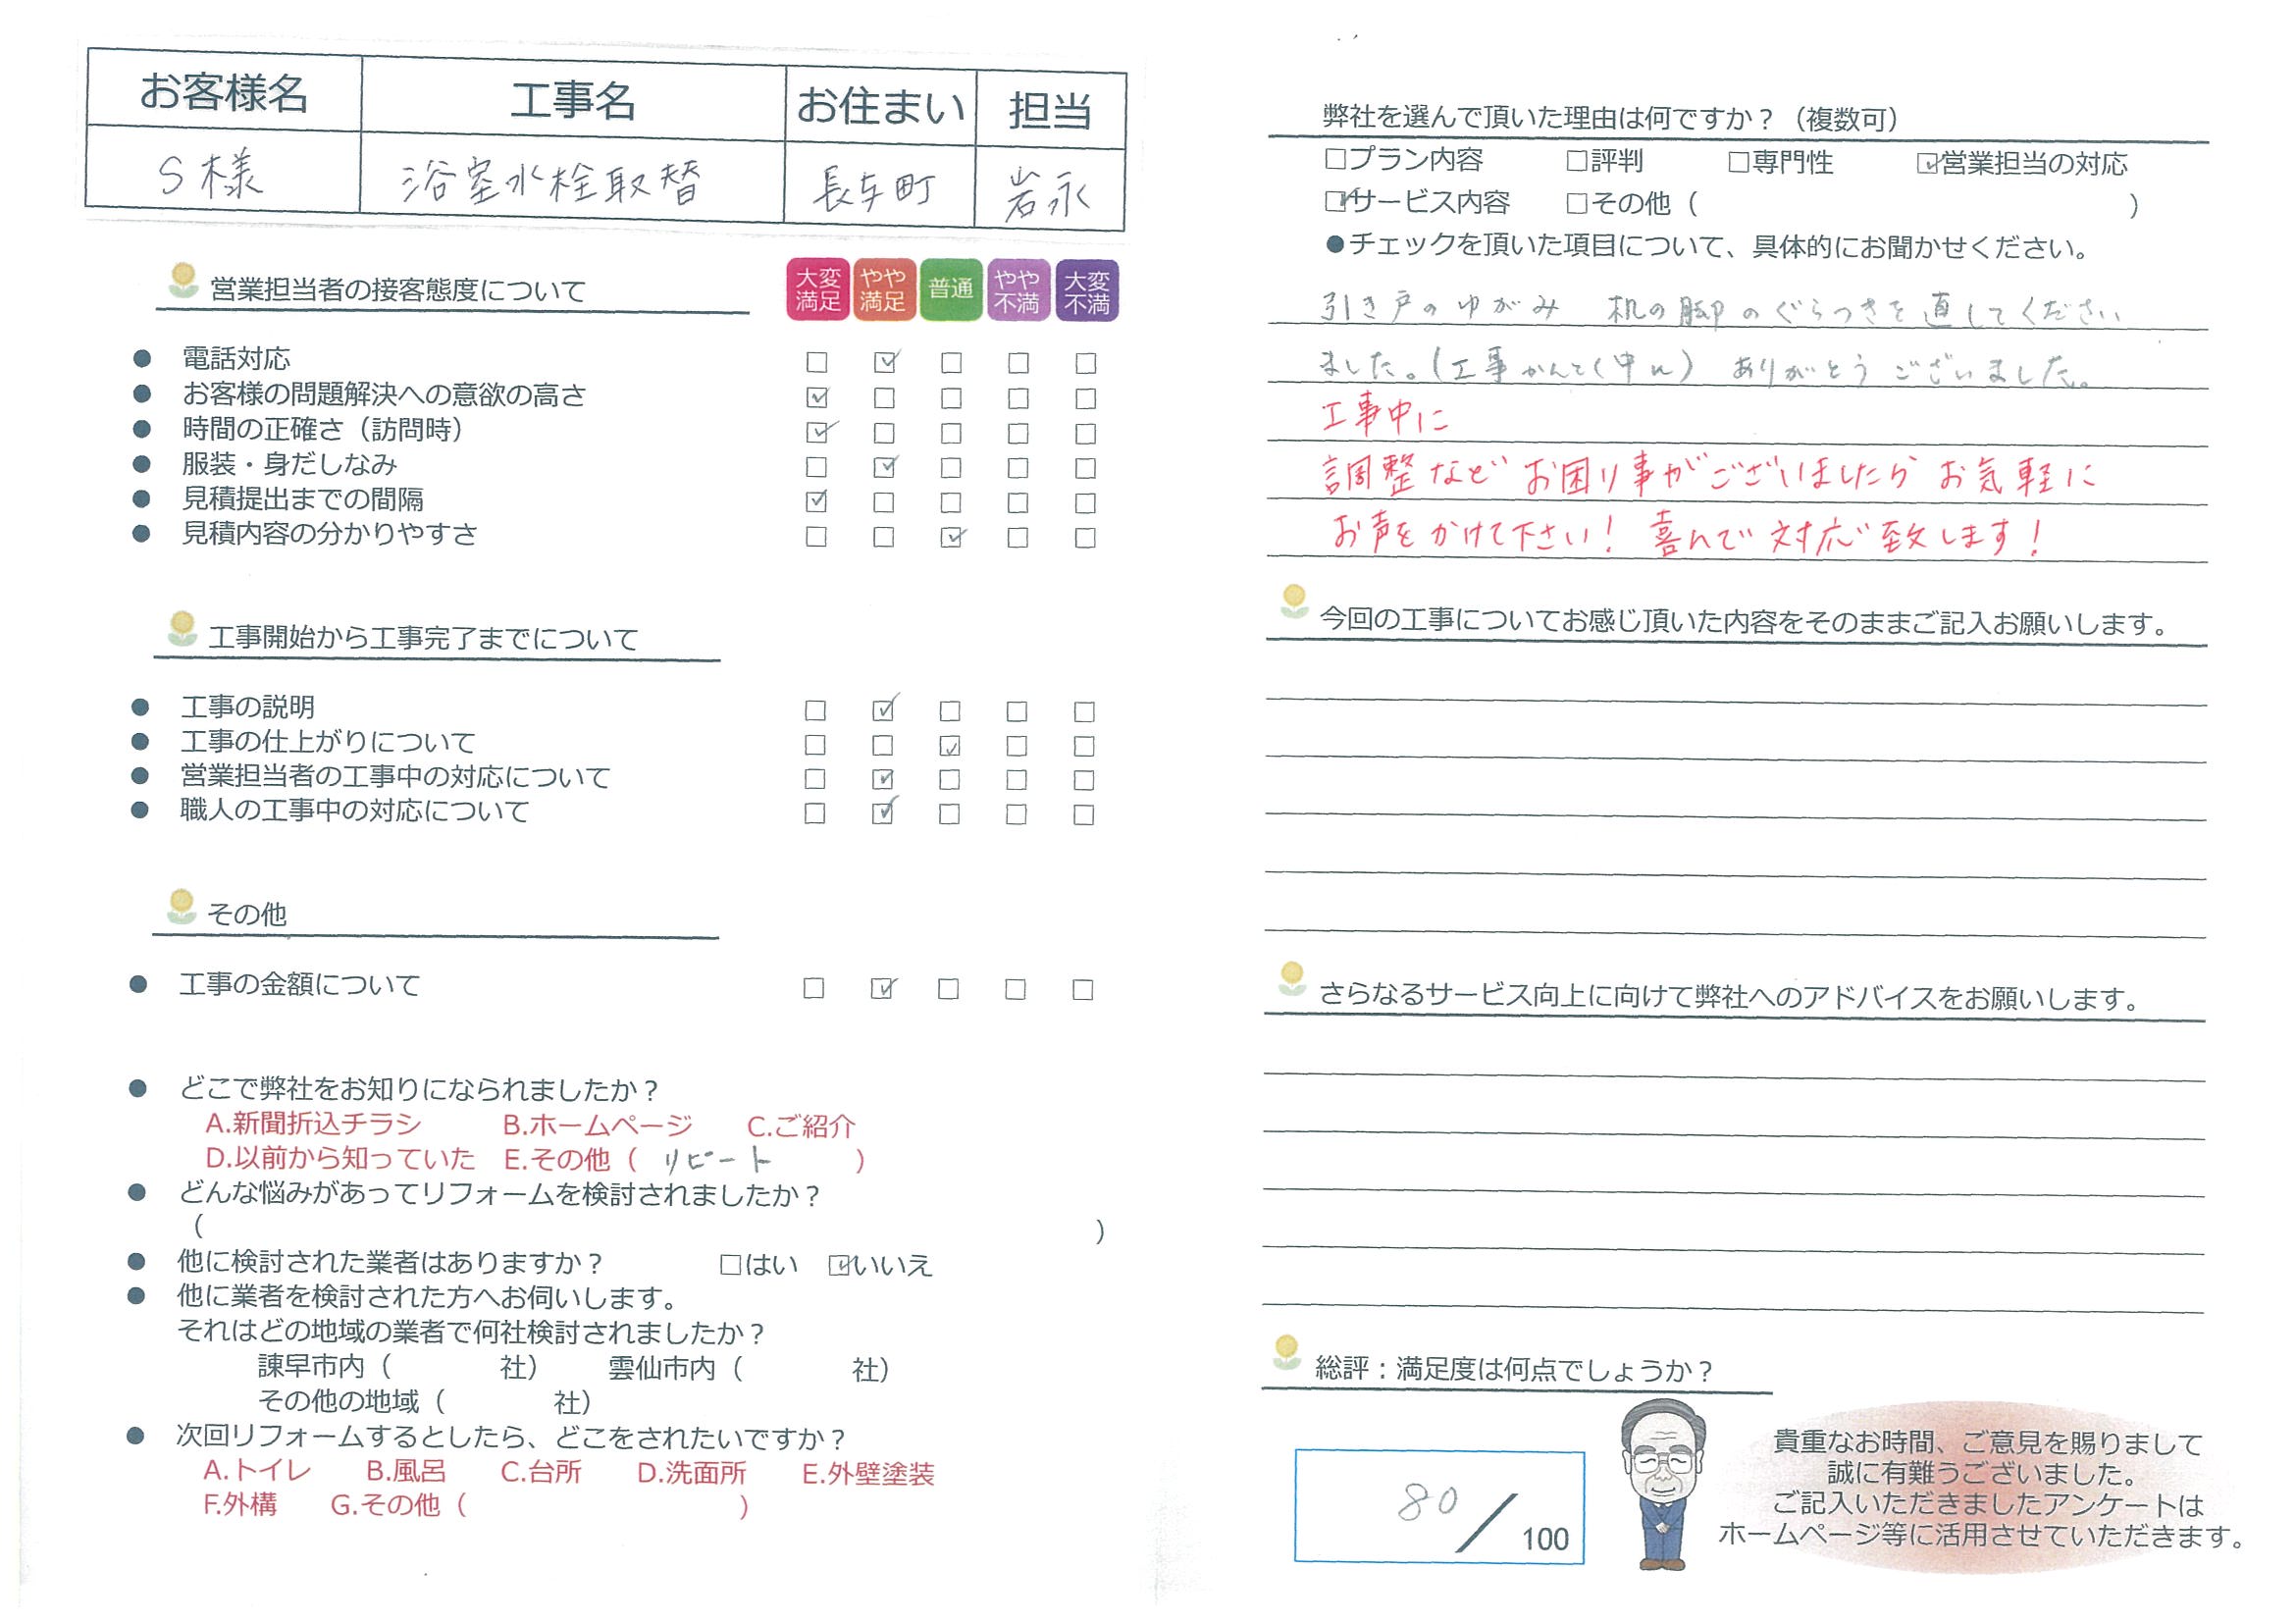 お客様名 工事名 お住まい 担当
S様 浴室水栓取替 長与町 岩永
営業担当者の接客態度について
大変満足 やや満足 普通 やや不満 大変不満
● 電話対応 □ ☑ □ □ □
● お客様の問題解決への意欲の高さ ☑ □ □ □ □
● 時間の正確さ（訪問時） ☑ □ □ □ □
● 服装・身だしなみ □ ☑ □ □ □
● 見積提出までの間隔 ☑ □ □ □ □
● 見積内容の分かりやすさ □ □ ☑ □ □
工事開始から工事完了までについて
● 工事の説明 □ ☑ □ □ □
● 工事の仕上がりについて □ □ ☑ □ □
● 営業担当者の工事中の対応について □ ☑ □ □ □
● 職人の工事中の対応について □ ☑ □ □ □
その他
● 工事の金額について □ ☑ □ □ □
● どこで弊社をお知りになられましたか？
A.新聞折込チラシ B.ホームページ C.ご紹介
D.以前から知っていた E.その他（ リピート ）
● どんな悩みがあってリフォームを検討されましたか？
（ ）
● 他に検討された業者はありますか？ □はい ☑いいえ
● 他に業者を検討された方へお伺いします。
それはどの地域の業者で何社検討されましたか？
諫早市内（ 社） 雲仙市内（ 社）
その他の地域（ 社）
● 次回リフォームするとしたら、どこをされたいですか？
A.トイレ B.風呂 C.台所 D.洗面所 E.外壁塗装
F.外構 G.その他（ ）
弊社を選んで頂いた理由は何ですか？（複数可）
□プラン内容 □評判 □専門性 ☑営業担当の対応
☑サービス内容 □その他（ ）
●チェックを頂いた項目について、具体的にお聞かせください。
引き戸のゆがみ 机の脚のぐらつきを直してください
ました。(工事かんとく 中 ) ありがとうございました。
工事中に
調整などお困り事がございましたら お気軽に
お声をかけて下さい！ 喜んで対応致します！
今回の工事についてお感じ頂いた内容をそのままご記入お願いします。
さらなるサービス向上に向けて弊社へのアドバイスをお願いします。
総評：満足度は何点でしょうか？
80／100
貴重なお時間、ご意見を賜りまして
誠に有難うございました。
ご記入いただきましたアンケートは
ホームページ等に活用させていただきます。